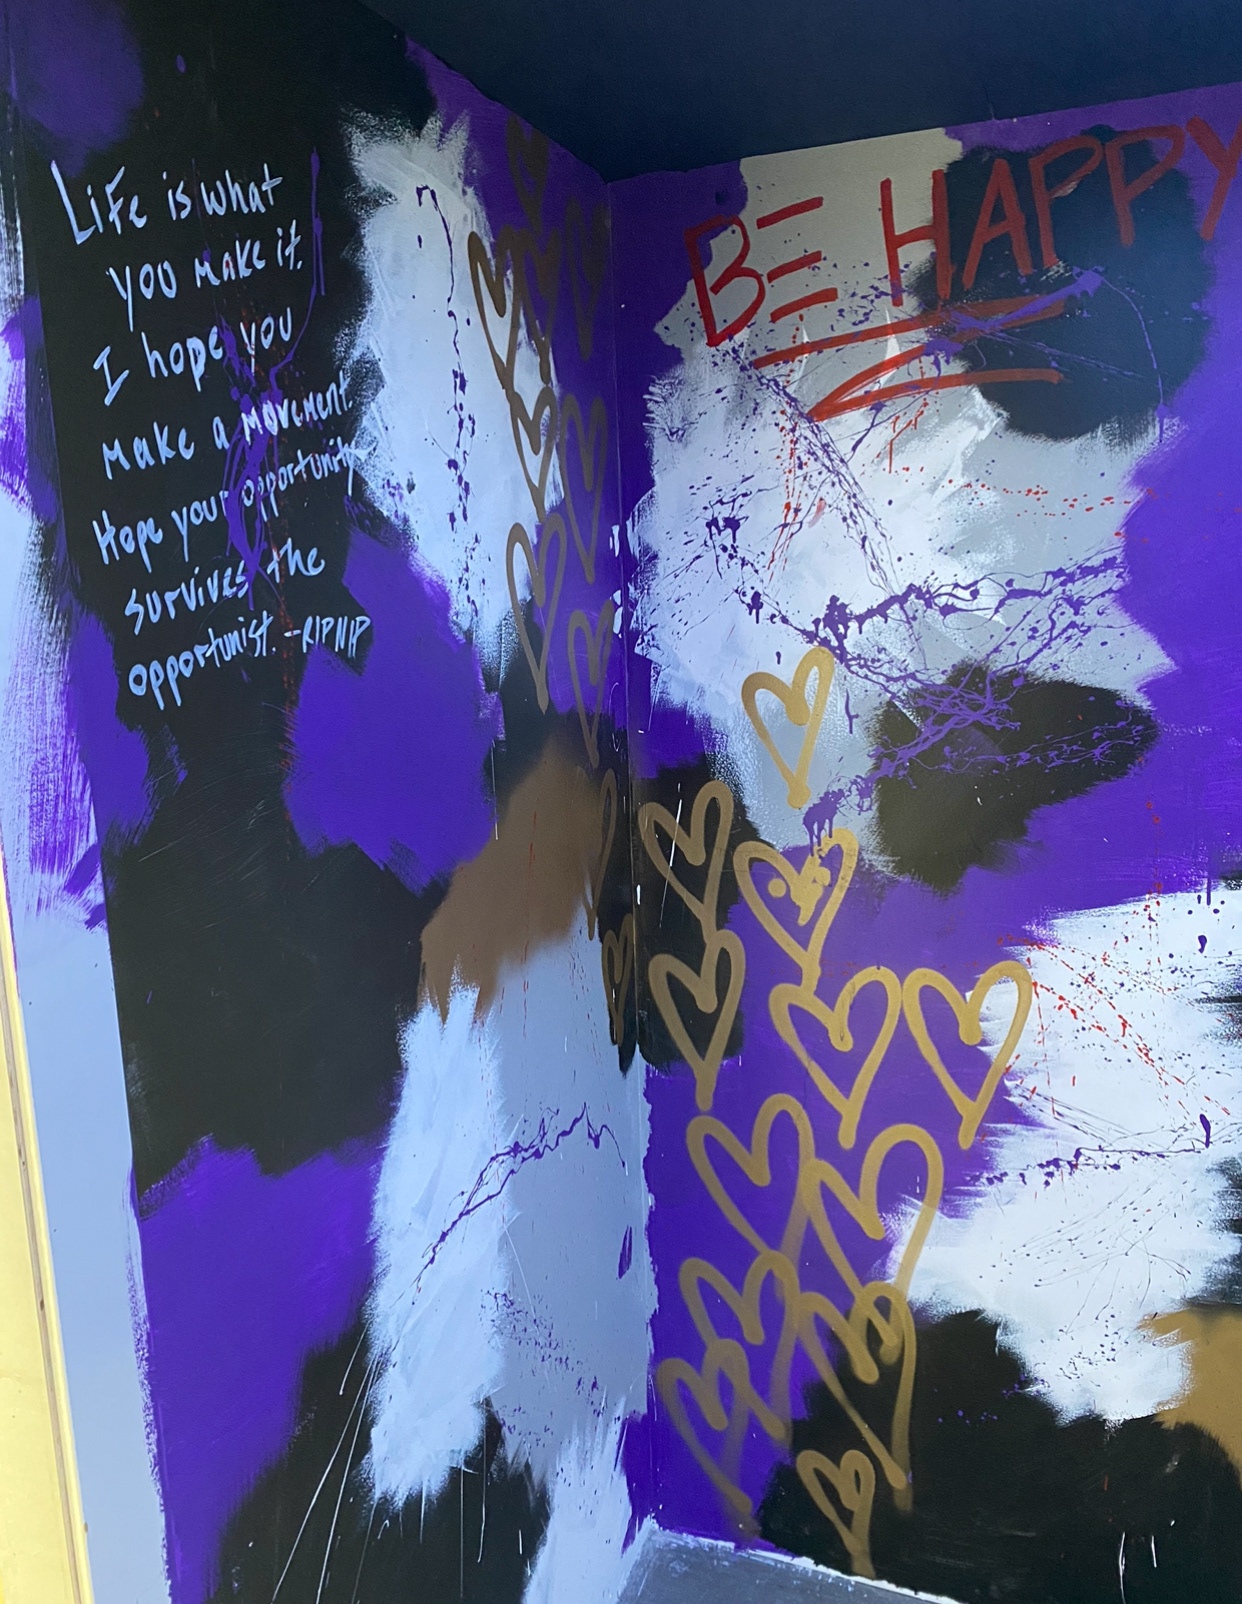 Life is what
you make it.
I hope you
make a movement.
Hope your opportunity
survives the
opportunist. -RIPNIP
BE HAPPY